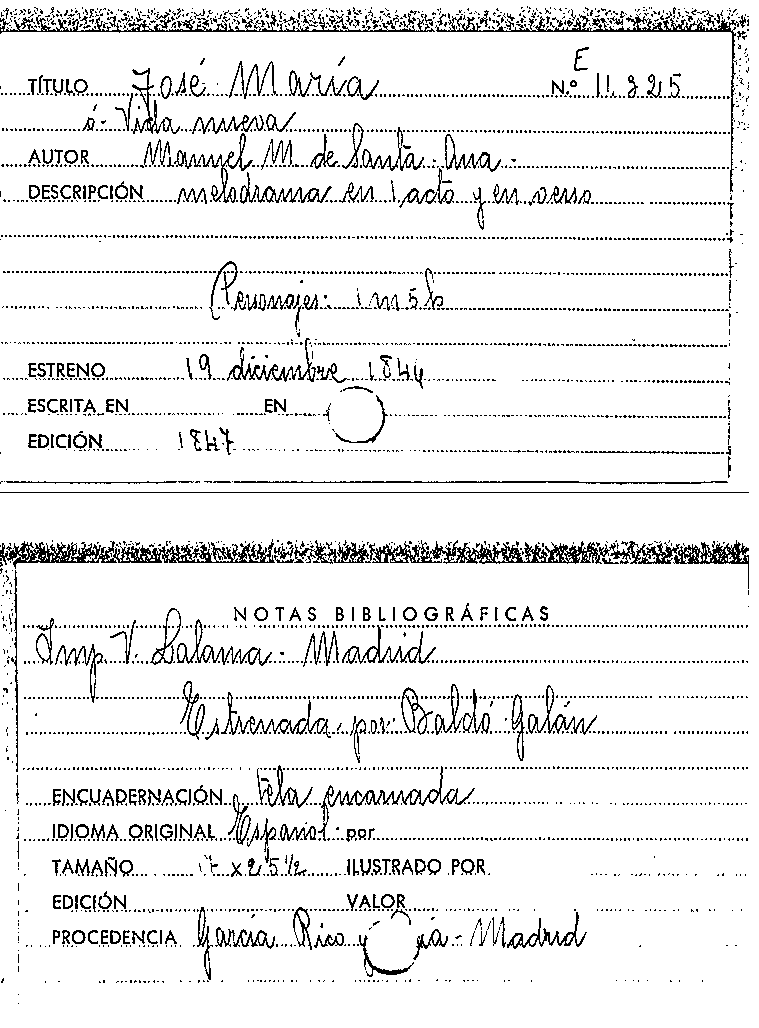 E
TÍTULO José María N.º 11.325
ó- Vida nueva
AUTOR Manuel M. de Santa-Ana-
DESCRIPCIÓN melodrama en 1 acto y en verso
Personajes: 1 m 5 h
ESTRENO 19 diciembre 1844
ESCRITA EN EN
EDICIÓN 1847
NOTAS BIBLIOGRÁFICAS
Imp. V. Lalama- Madrid
Estrenada por Baldó Galán
ENCUADERNACIÓN tela encarnada
IDIOMA ORIGINAL Español por
TAMAÑO 17 x 25 1/2 ILUSTRADO POR
EDICIÓN VALOR
PROCEDENCIA García Rico y - Madrid